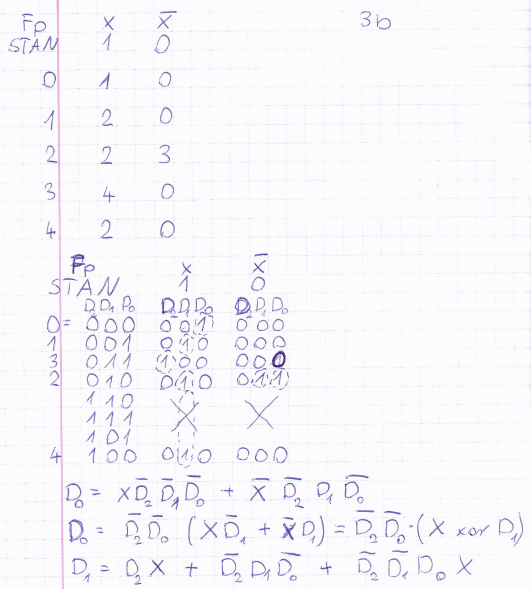 3b
Fp X X̅
STAN 1 0
0 1 0
1 2 0
2 2 3
3 4 0
4 2 0
Fp X X̅
STAN 1 0
D₂D₁D₀ D₂D₁D₀ D₂D₁D₀
0= 000 001 000
1 001 010 000
3 011 100 000
2 010 010 011
110
111 X X
101
4 100 010 000
D₀ = X D̅₂ D̅₁ D̅₀ + X̅ D̅₂ D₁ D̅₀
D₀ = D̅₂ D̅₀ (X D̅₁ + X̅ D₁) = D̅₂ D̅₀·(X xor D₁)
D₁ = D₂ X + D̅₂ D₁ D̅₀ + D̅₂ D̅₁ D₀ X